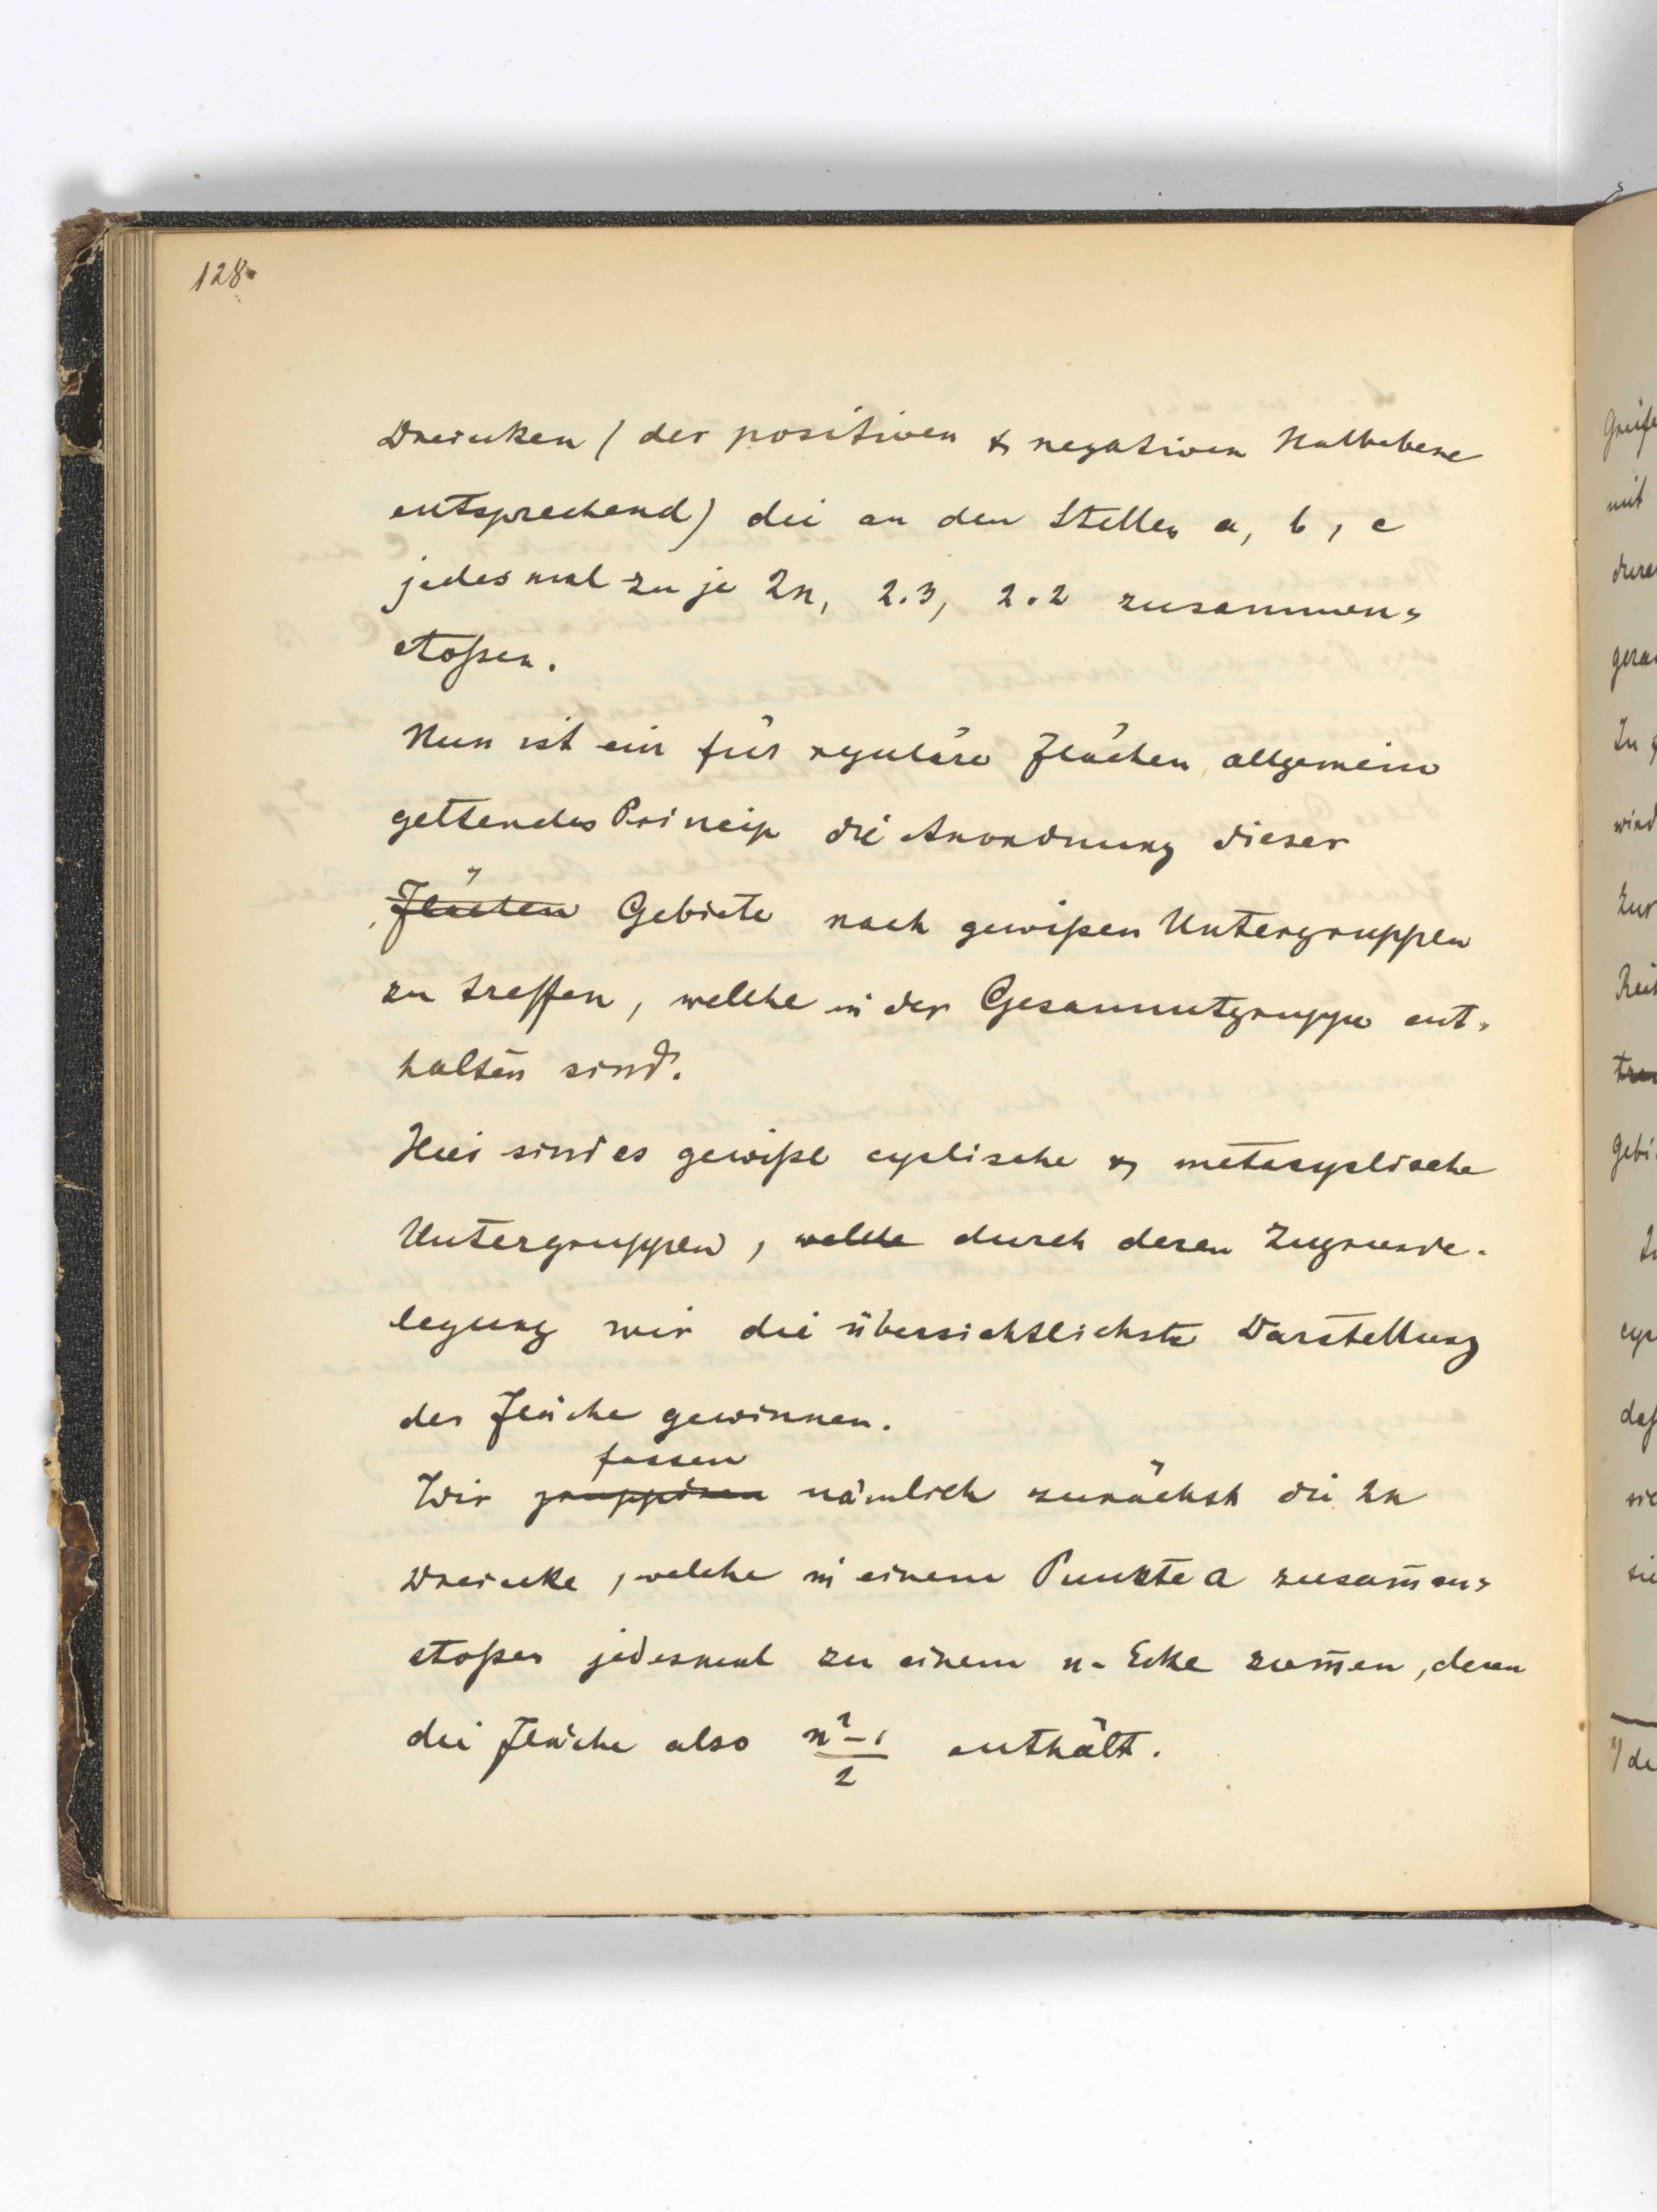 128.
Dreiecken (der positiven & negativen Halbebene
entsprechend) die an den Stellen a, b, c
jedesmal zu je 2n, 2.3, 2.2 zusammen-
stoßen.
Nun ist ein für reguläre Flächen allgemein
geltendes Princip die Anordnung dieser
Flächen Gebiete nach gewißen Untergruppen
zu treffen, welche in der Gesammtgruppe ent-
halten sind.
Hier sind es gewiße cyclische & metacyclische
Untergruppen, welche durch deren Zugrunde-
legung wir die übersichtlichste Darstellung
der Fläche gewinnen.
fassen
Wir gruppiren nämlich zunächst die 2n
Dreiecke, welche in einem Punkte a zusam̄en-
stoßen jedesmal zu einem n-Ecke zusm̄en, deren
die Fläche also n²-1/2 enthält.
Greife
mit
gera
In
wird
Zur
Gebi